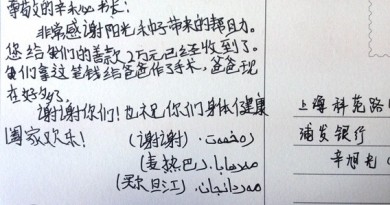 尊敬的辛秘书长：
非常感谢阳光 带来的帮助。
您给我们的善款2万元已经收到了。
我们拿这笔钱给爸爸作了手术，爸爸现
在好多了。
谢谢你们！也祝你们身体健康
阖家欢乐！
（谢谢） رەخمەت.
（麦热巴） مەرھابا.
旦江） مەردانجان.
上海 科苑路
浦发银行
辛旭光